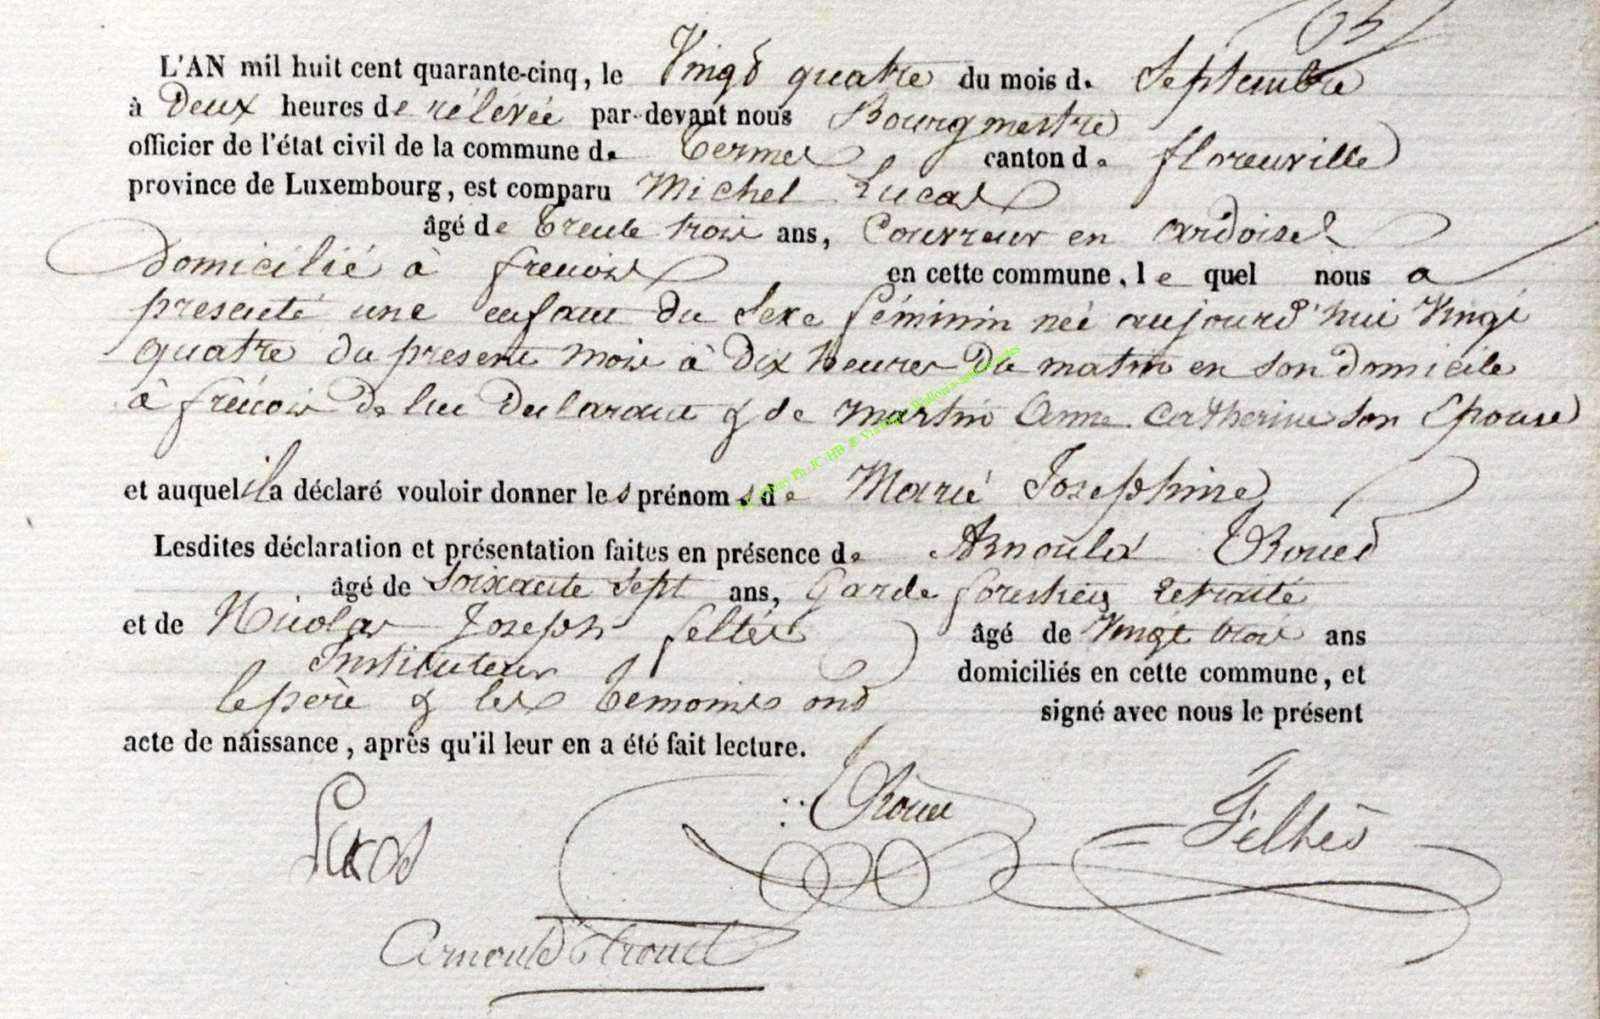 L'AN mil huit cent quarante-cinq, le Vingt quatre du mois de Septembre
à Deux heures de rélévée par-devant nous Bourgmestre
officier de l'état civil de la commune de Termes canton de florenville
province de Luxembourg, est comparu Michel Lucas
âgé de Trente trois ans, Couvreur en ardoises
Domicilié à frenois en cette commune, le quel nous a
presenté une enfant du Sexe féminin née aujourd'hui Vingt
quatre du present mois à dix heures du matin en son domicile
à frénois de lui déclarant & de Martin Anne Catherine son Epouse
et auquel il a déclaré vouloir donner les prénoms de Marie Josephine
Lesdites déclaration et présentation faites en présence de Arnould Troued
âgé de Soixante Sept ans, Garde forestier retraité
et de Nicolas Joseph feltés âgé de Vingt trois ans
Instituteur domiciliés en cette commune, et
le père & les temoins ond signé avec nous le présent
acte de naissance, après qu'il leur en a été fait lecture.
Lucas Feltès
Arnould Trouet